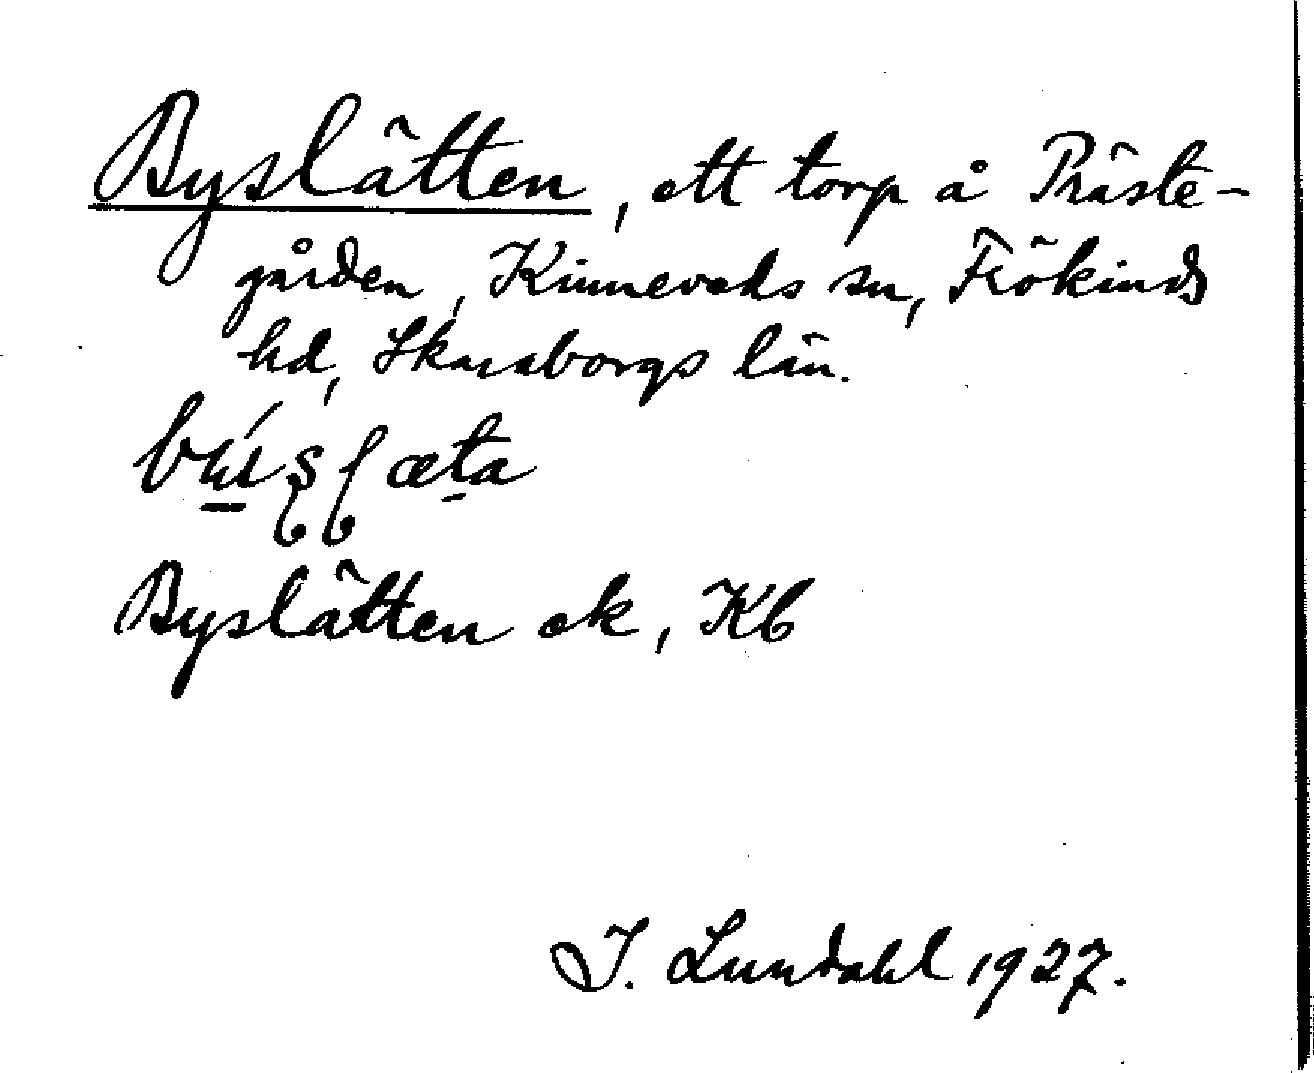 Byslätten, ett torp å Präste-
gården, Kinneveds sn, Frökinds
hd, Skaraborgs län.
Byslätten ek, Kb
I. Lundahl 1927.